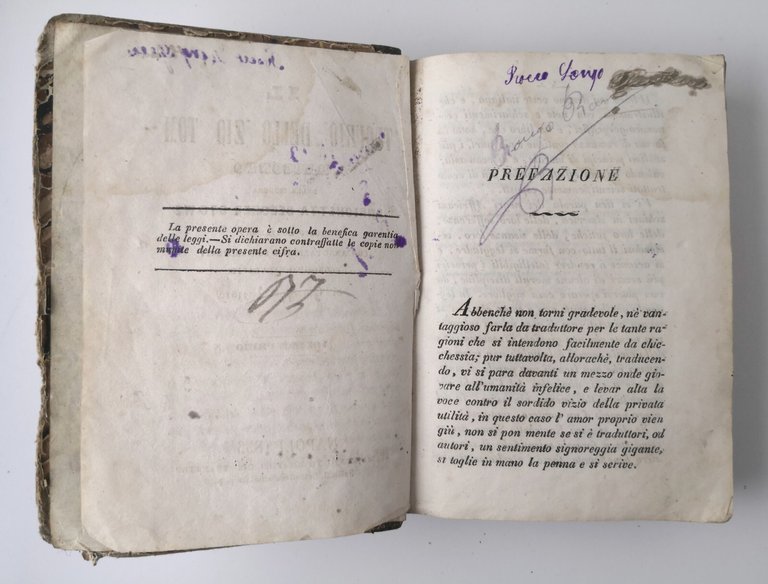 La presente opera è sotto la benefica garentia
delle leggi.—Si dichiarano contraffatte le copie non
munite della presente cifra.
Rocco Longo
PREFAZIONE
Abbenchè non torni gradevole, nè van-
taggioso farla da traduttore per le tante ra-
gioni che si intendono facilmente da chic-
chessia; pur tuttavolta, allorachè, traducen-
do, vi si para davanti un mezzo onde gio-
vare all'umanità infelice, e levar alta la
voce contro il sordido vizio della privata
utilità, in questo caso l'amor proprio vien
giù, non si pon mente se si è traduttori, od
autori, un sentimento signoreggia gigante,
si toglie in mano la penna e si scrive.